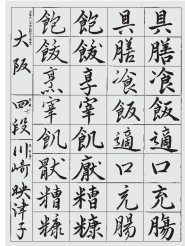 具膳飡飯適口充腸
具膳飡飯適口充腸
飽飫享宰飢厭糟糠
飽飫烹宰飢猒糟糠
大阪 四段 川崎映津子